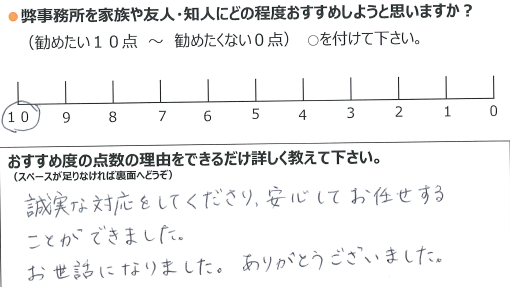 ●弊事務所を家族や友人・知人にどの程度おすすめしようと思いますか？
（勧めたい１０点　～　勧めたくない０点）　○を付けて下さい。
10 9 8 7 6 5 4 3 2 1 0
おすすめ度の点数の理由をできるだけ詳しく教えて下さい。
（スペースが足りなければ裏面へどうぞ）
誠実な対応をしてくださり、安心してお任せする
ことができました。
お世話になりました。ありがとうございました。